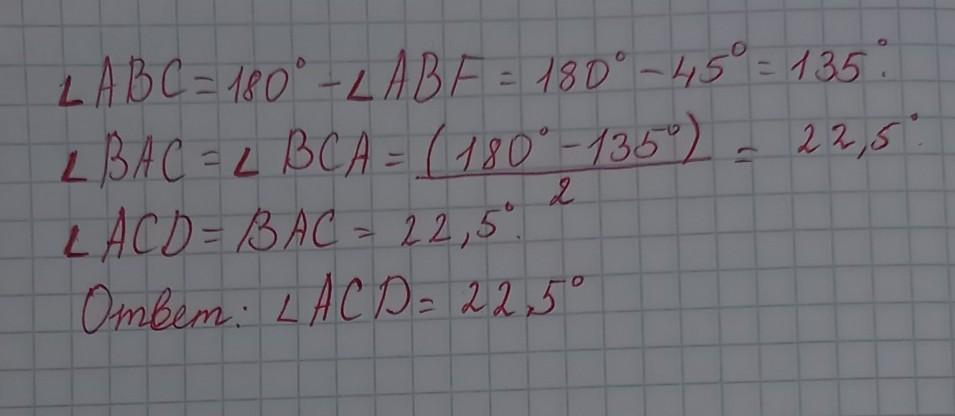 ∠ABC = 180° - ∠ABF = 180° - 45° = 135°.
∠BAC = ∠BCA = (180° - 135°)/2 = 22,5°.
∠ACD = BAC = 22,5°.
Ответ: ∠ACD = 22,5°